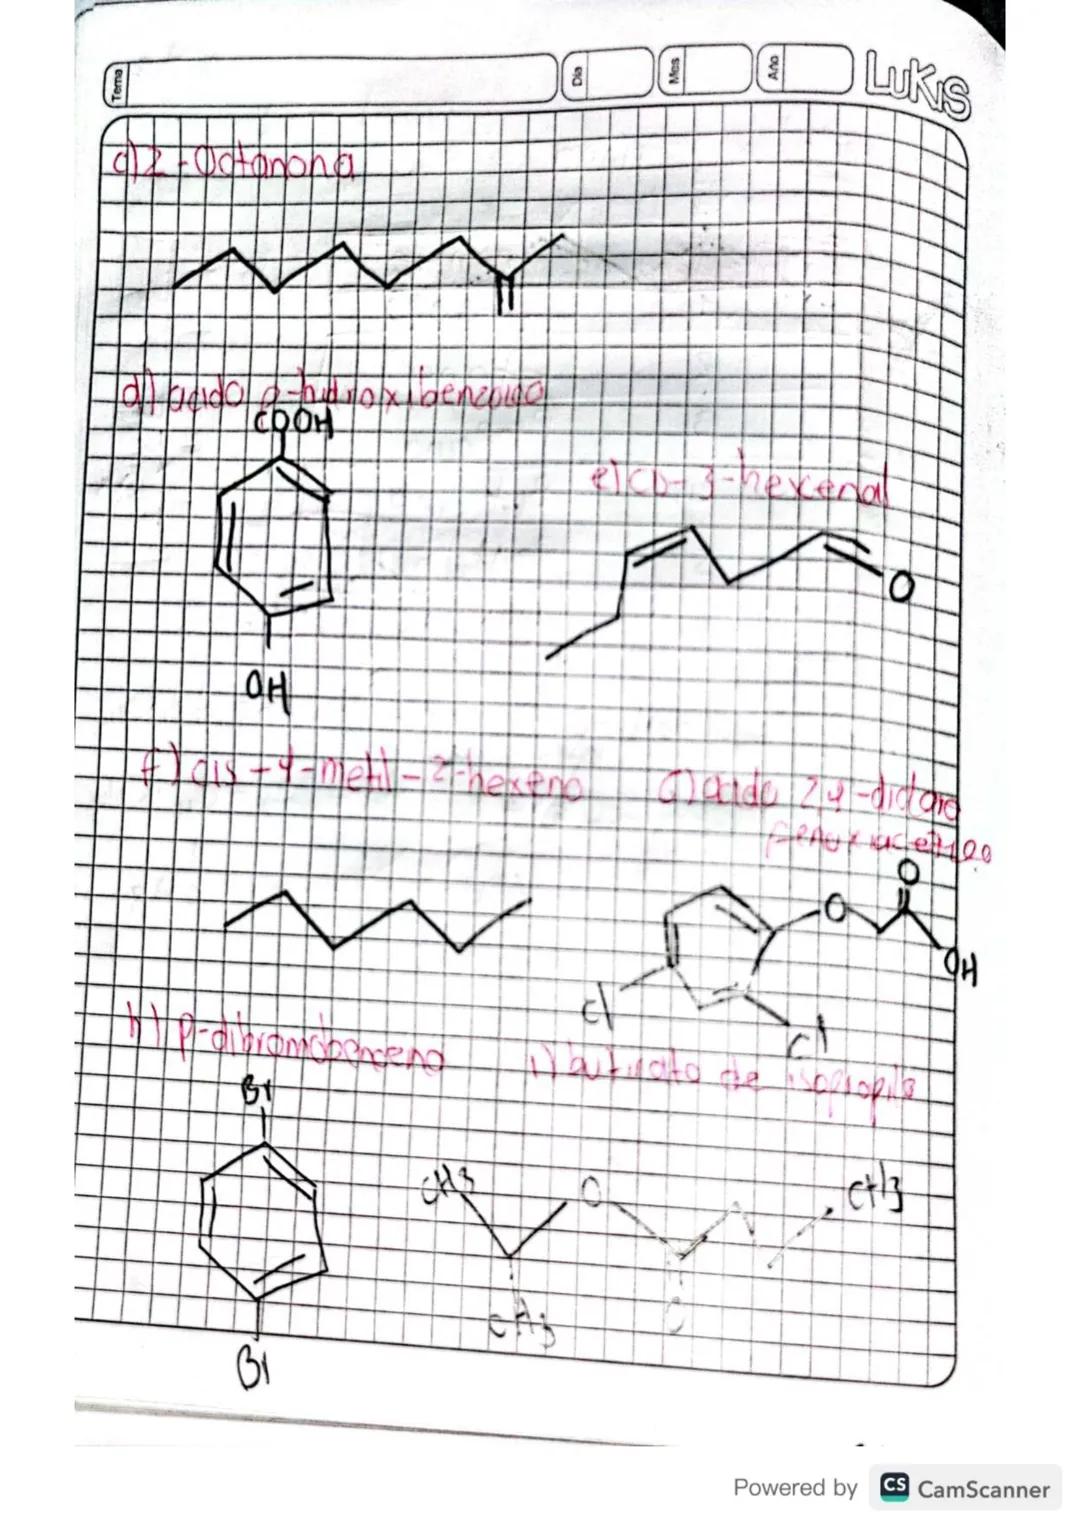 Tema Dia Mes Año LUKIS
c) 2-Octanona
d) acido p-hidroxibenzoico
COOH
OH
e) cis-3-hexenal
O
f) cis-4-metil-2-hexeno
G) acido 2,4-dicloro
fenoxiacetico
O
O
OH
Cl
Cl
h) p-dibromobenceno
Br
Br
i) butirato de isopropilo
CH3 O CH3
CH3
Powered by CS CamScanner